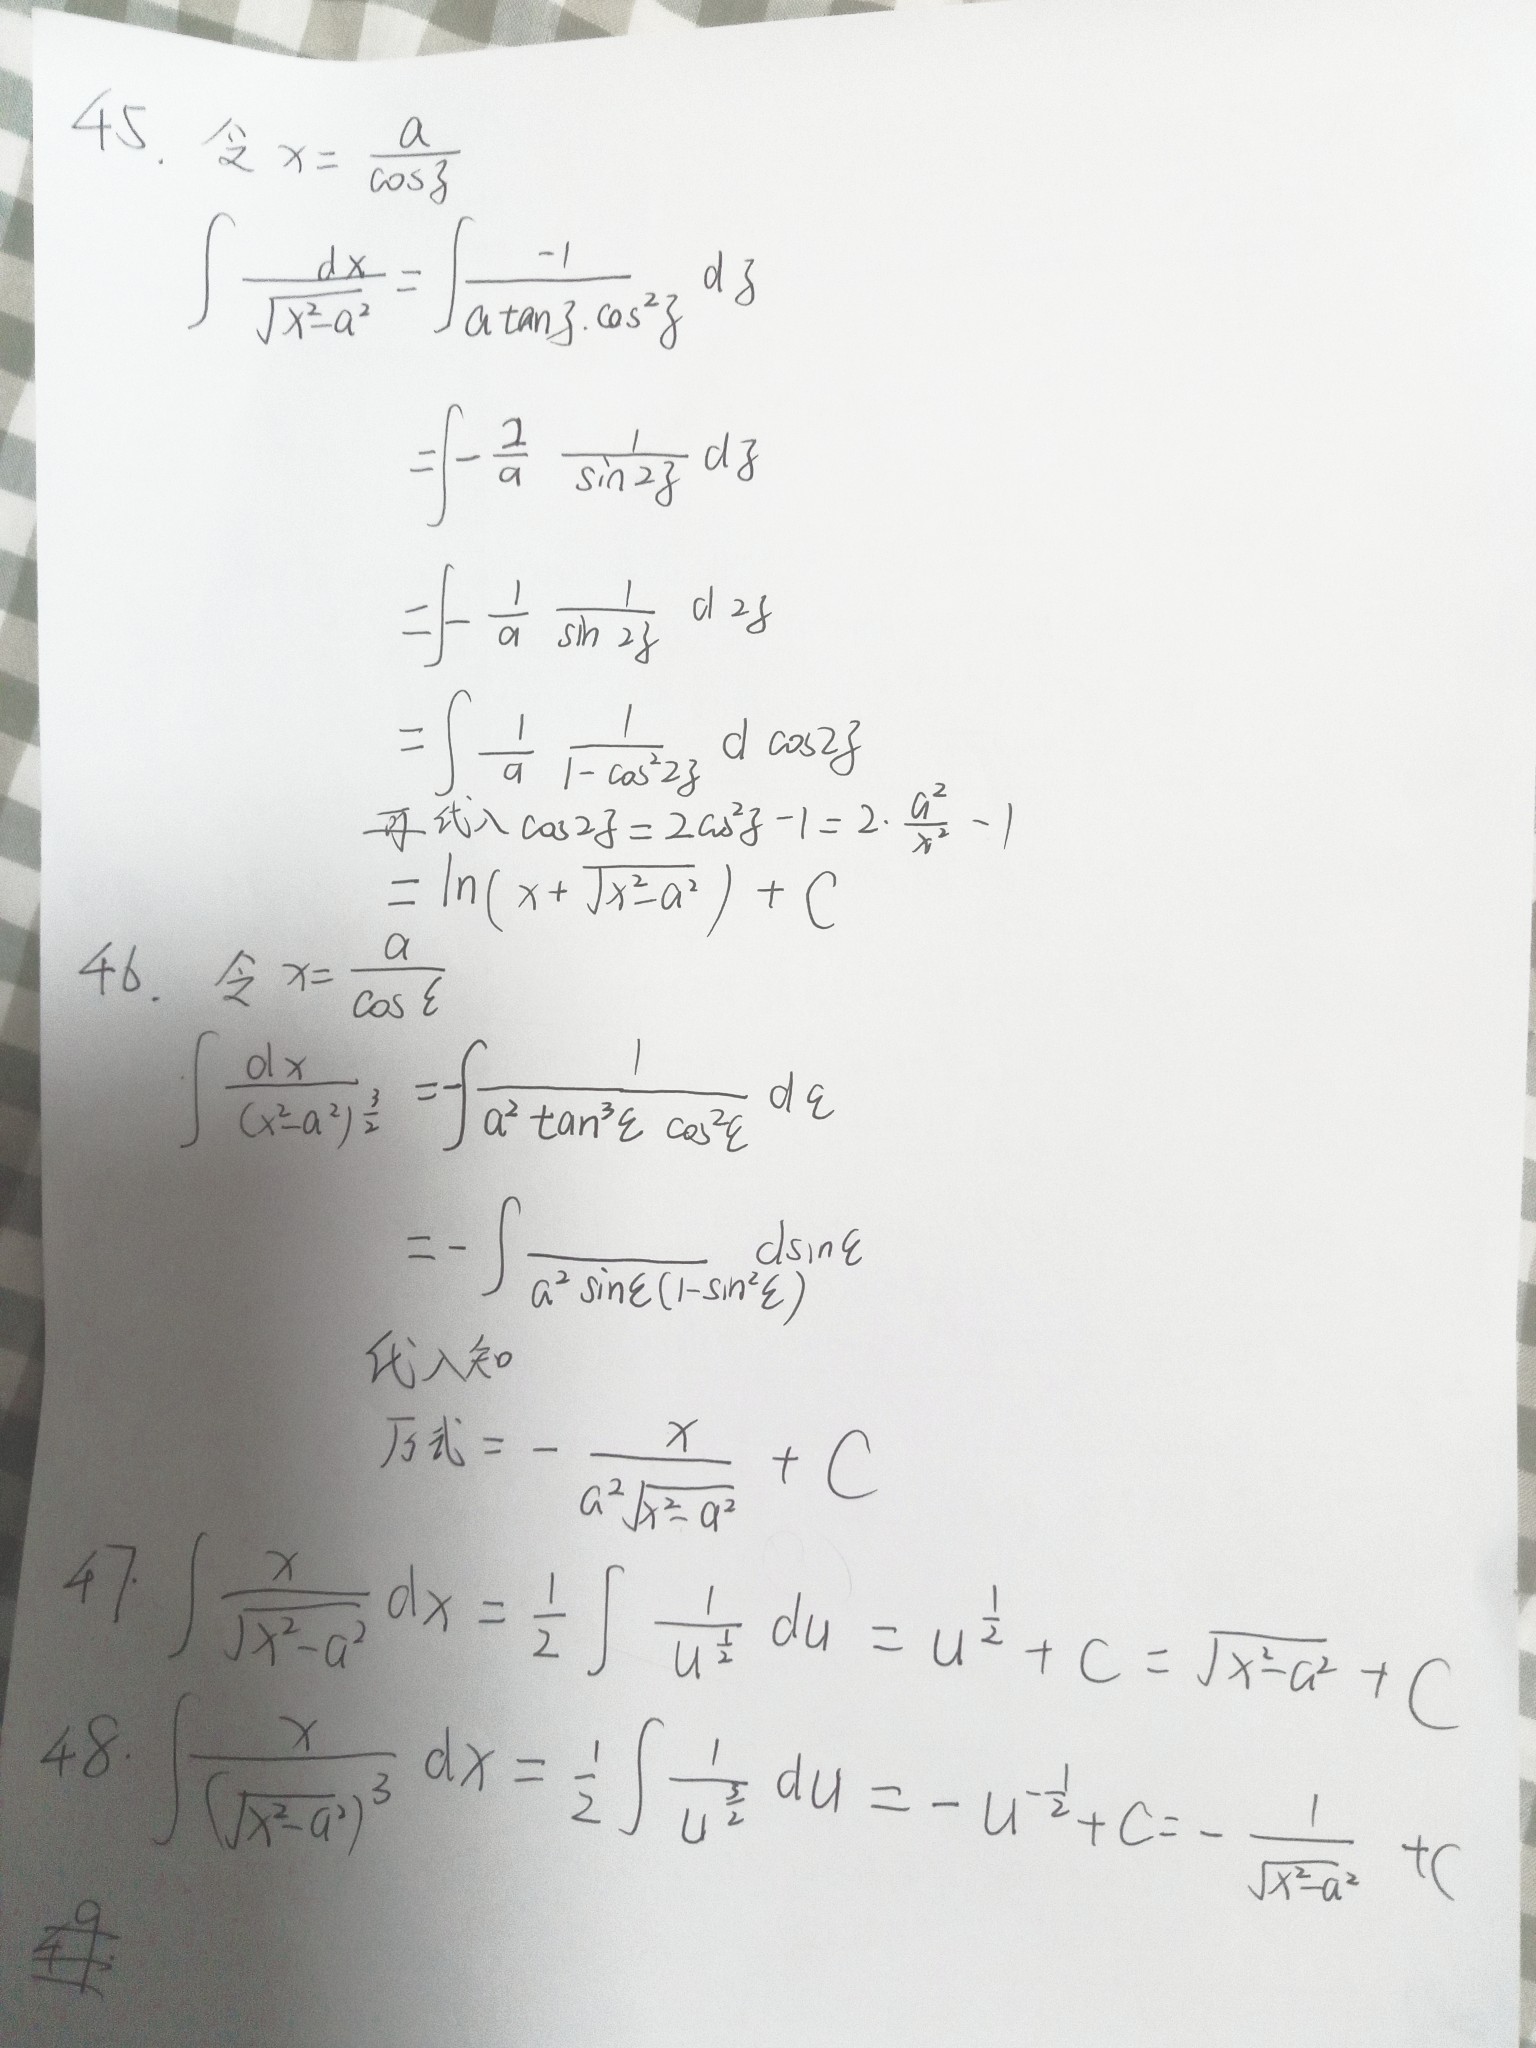 45. 令 x = a/cosξ
∫ dx/√(x²-a²) = ∫ -1/(a tanξ·cos²ξ) dξ
= ∫ - 2/a 1/sin2ξ dξ
= ∫ - 1/a 1/sin2ξ d2ξ
= ∫ 1/a 1/(1-cos²2ξ) d cos2ξ
代入 cos2ξ = 2cos²ξ - 1 = 2·a²/x² - 1
= ln(x+√(x²-a²)) + C
46. 令 x = a/cosξ
∫ dx/(x²-a²)^(3/2) = -∫ 1/(a² tan³ξ cos²ξ) dξ
= -∫ dsinξ/(a² sinξ(1-sin²ξ))
代入知
原式 = - x/(a²√(x²-a²)) + C
47. ∫ x/√(x²-a²) dx = 1/2 ∫ 1/u^(1/2) du = u^(1/2) + C = √(x²-a²) + C
48. ∫ x/(√(x²-a²))³ dx = 1/2 ∫ 1/u^(3/2) du = -u^(-1/2) + C = - 1/√(x²-a²) + C
49.